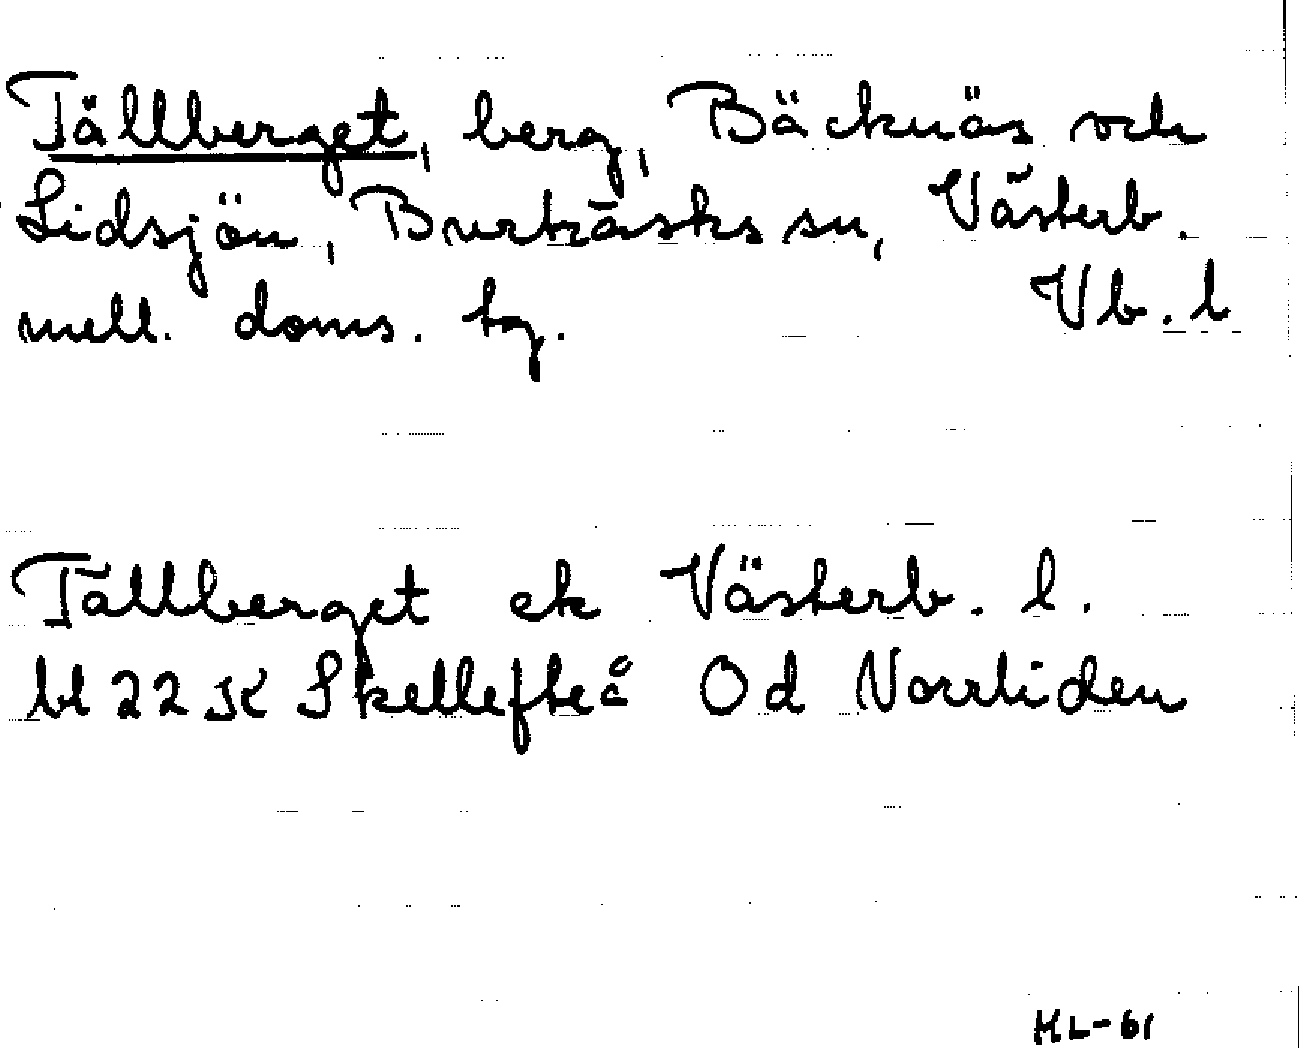 Tällberget, berg, Bäcknäs och
Lidsjön, Burträsks sn, Västerb.
mell. doms. tg. Vb. l
Tällberget ek Västerb. l.
bl 22 K Skellefteå Od Norrliden
HL-61